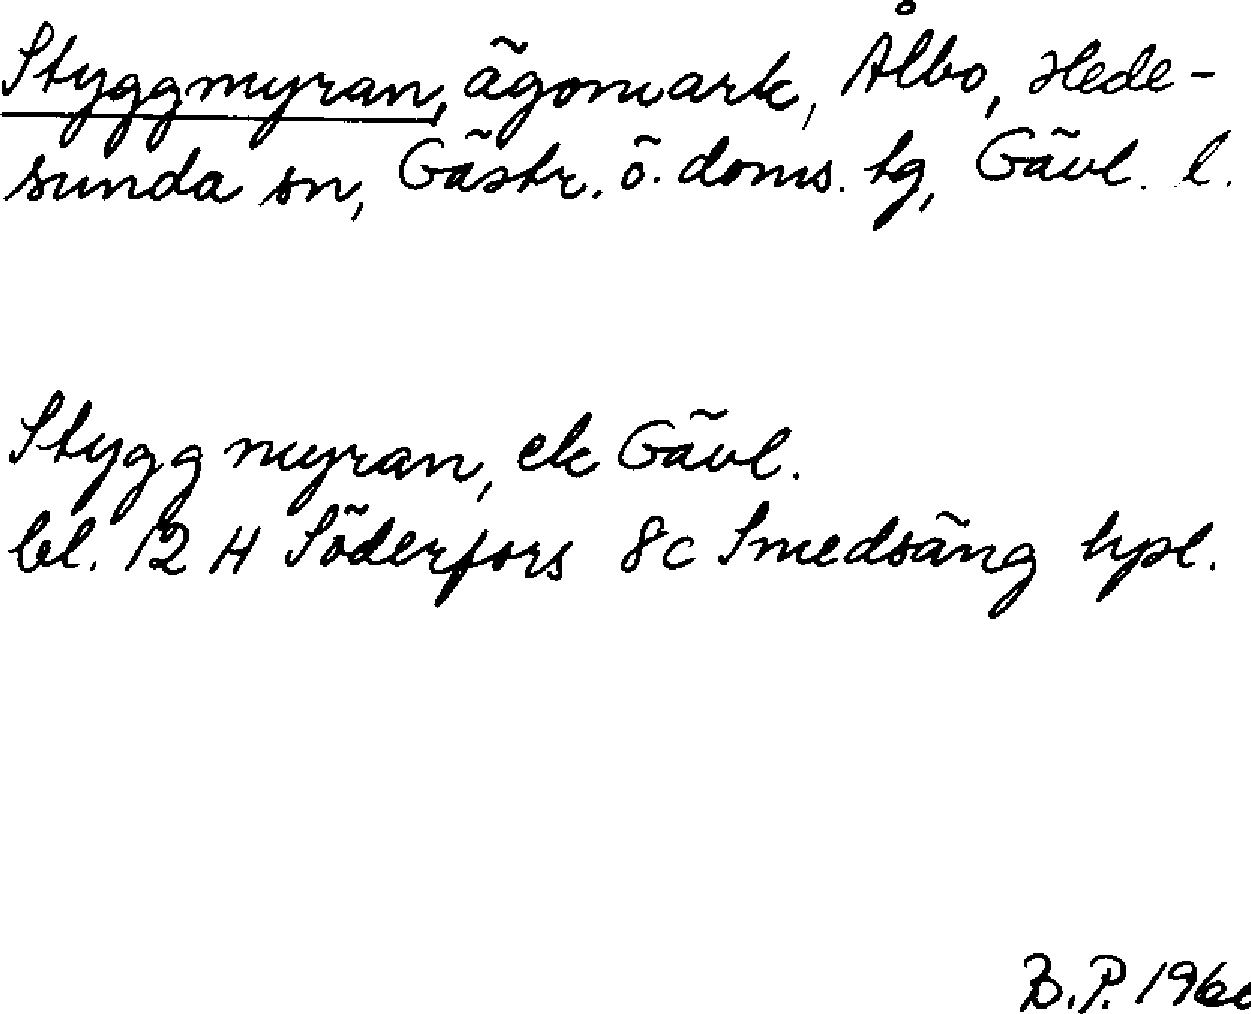 Styggmyran, ägomark, Ålbo, Hede-
sunda sn, Gästr. ö. doms. tg, Gävl. l.
Styggmyran, ek Gävl.
bl. 12 H Söderfors 8c Smedsäng hpl.
B.P.